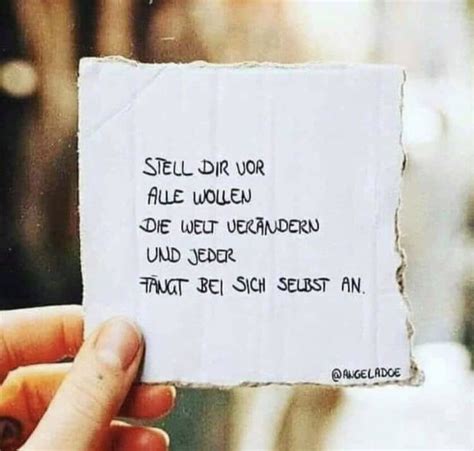 STELL DIR VOR
ALLE WOLLEN
DIE WELT VERÄNDERN
UND JEDER
FÄNGT BEI SICH SELBST AN.
@ANGELADOE